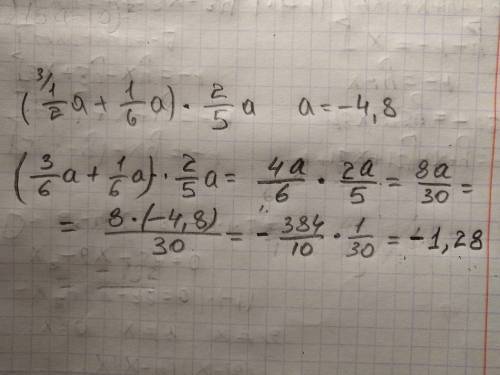 (³⁄1/2 a + 1/6 a) · 2/5 a   a = -4,8
(3/6 a + 1/6 a) · 2/5 a = 4a/6 · 2a/5 = 8a/30 =
= 8·(-4,8)/30 = - 384/10 · 1/30 = -1,28